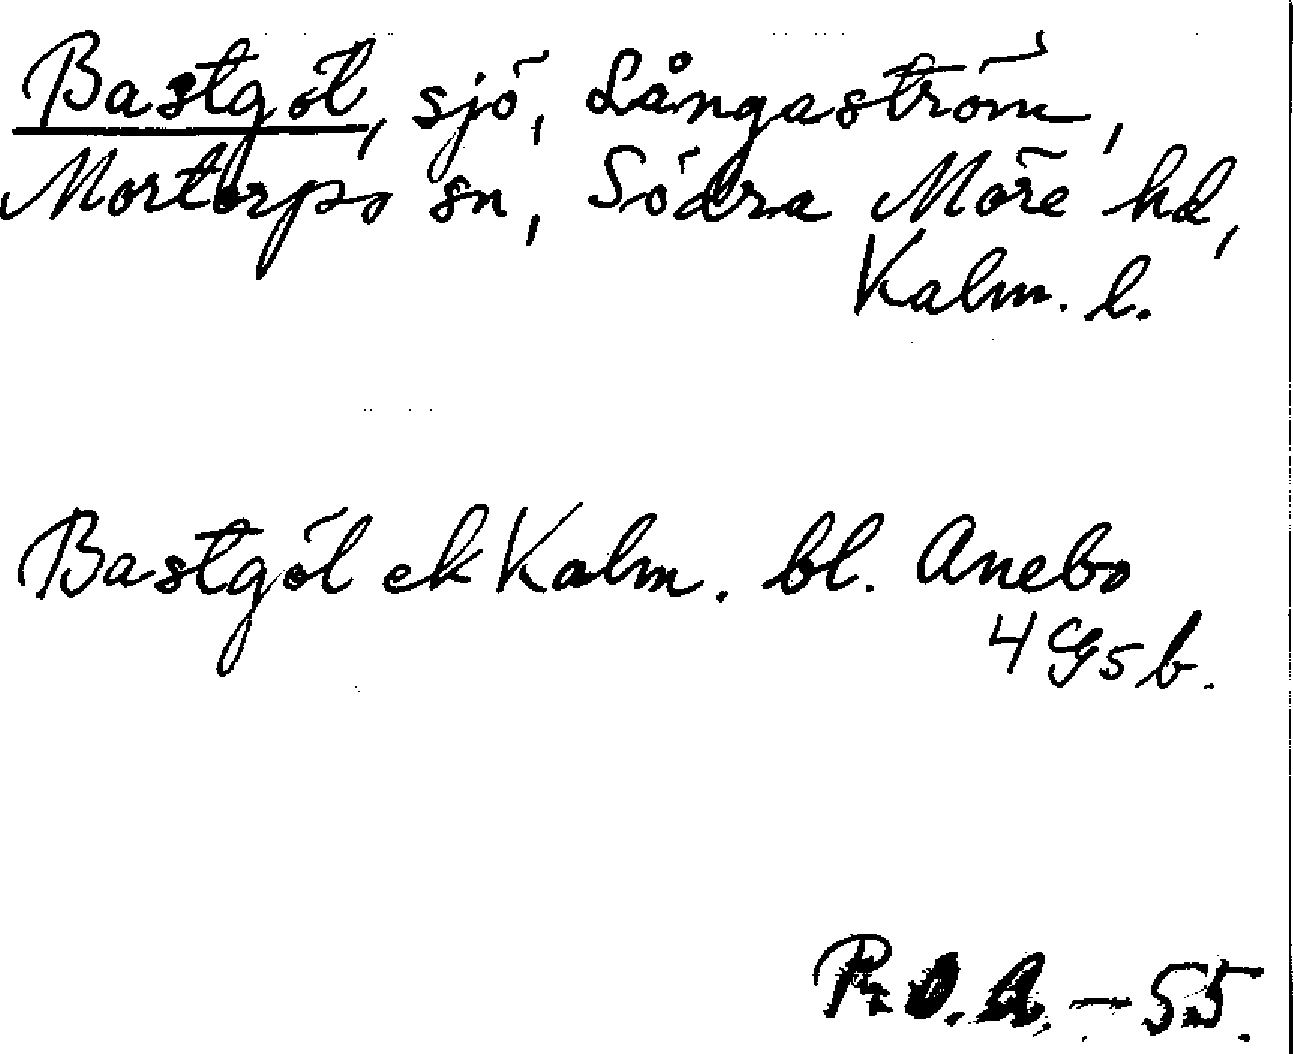 Bastgöl, sjö, Långaström,
Mortorps sn, Södra Möre hd,
Kalm. l.
Bastgöl ek Kalm. bl. Anebo
4 G5b.
R.O.A. - 55.